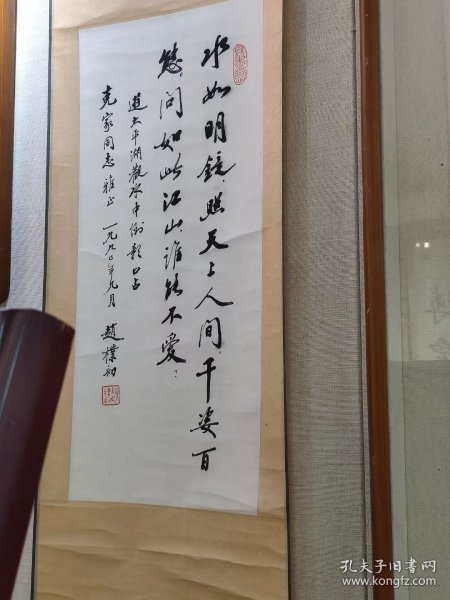 水如明镜，照天上人间，千姿百
态，问如此江山，谁能不爱？
游太平湖观水中倒影口占
克家同志雅正 一九九〇年九月 赵朴初
孔夫子旧书网
www.kongfz.com